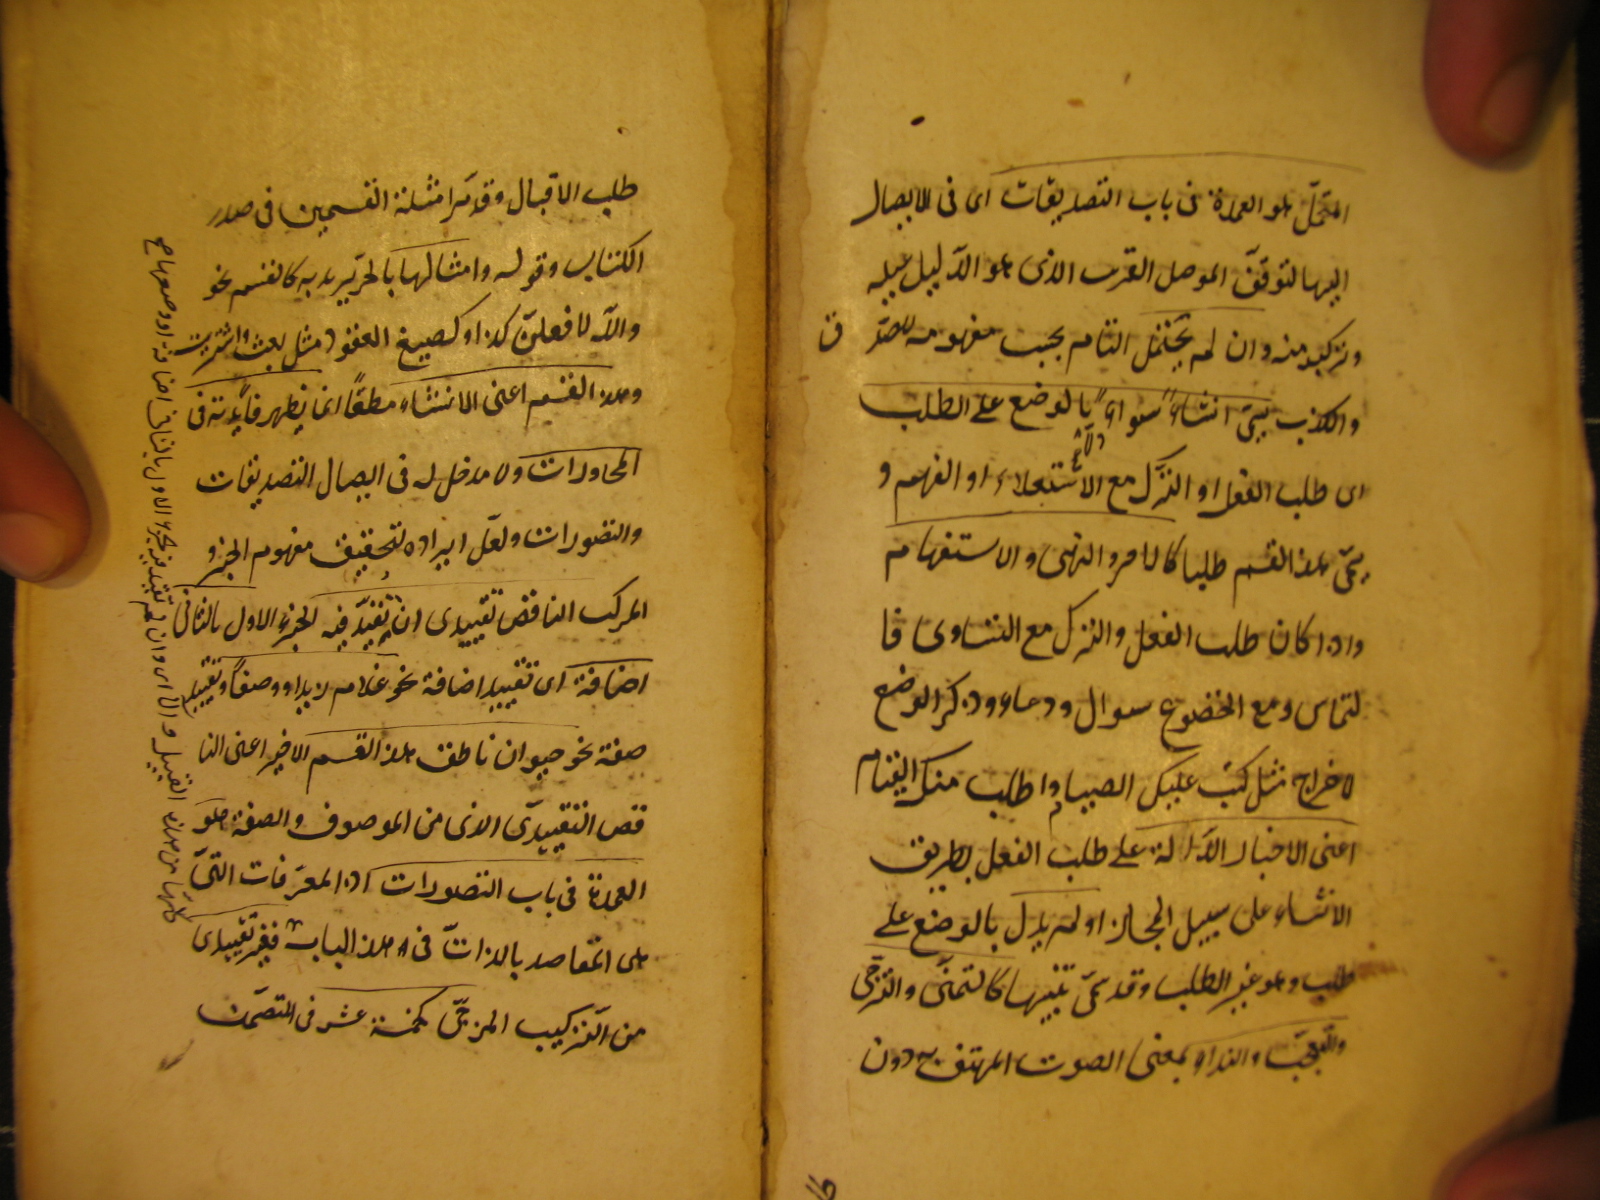 المحتمل هو العمدة فى باب التصديقات اى فى الايصال
اليها لتوقف الموصل القريب الذى هو الدليل عليه
وتركبه منه وان لم يحتمل التام بحسب مفهومه للصدق
والكذب يسمى انشاء سواء دل بالوضع على الطلب
اى طلب الفعل او الترك مع الاستعلاء او الفهم و
يسمى هذا القسم طلبا كالامر والنهى والاستفهام
واذا كان طلب الفعل والترك مع التساوى فا
لتماس ومع الخضوع سوال ودعاء وذكر الوضع
لاخراج مثل كتب عليكم الصيام واطلب منك القيام
اعنى الاخبار الدالة على طلب الفعل بطريق
الانشاء على سبيل المجاز او لم يدل بالوضع على
طلب وهو غير الطلب وقد سمى تنبيها كالتمنى والترجى
والتعجب والنداء بمعنى الصوت المهتف به دون
طلب الاقبال وقد مر امثلة القسمين فى صدر
الكتاب وقوله وامثالها بالجر يريد به كالقسم نحو
والله لافعلن كذا او كصيغ العقود مثل بعت واشتريت
وهذا القسم اعنى الانشاء مطلقا انما يظهر فايدته فى
المحاورات ولا مدخل له فى ايصال التصديقات
والتصورات ولعل ايراده لتحقيق مفهوم الجزء و
المركب الناقص تقييدى ان تقيد فيه الجزء الاول بالثانى
اضافة اى تقييد اضافة نحو غلام زيد او وصفا وتقييد
صفة نحو حيوان ناطق هذا القسم الاخير اعنى النا
قص التقييدى الذى من الموصوف والصفة هو
العمدة فى باب التصورات اذ المعرفات التى
هى المقاصد بالذات فى هذا الباب فغير تقييدى
من التركيب المزجى كخمسة عشر فى المتضمن
كلها من هذا القبيل والا اى وان لم تقيد فيه الجزء الاول بالثانى اضافة او وصفا